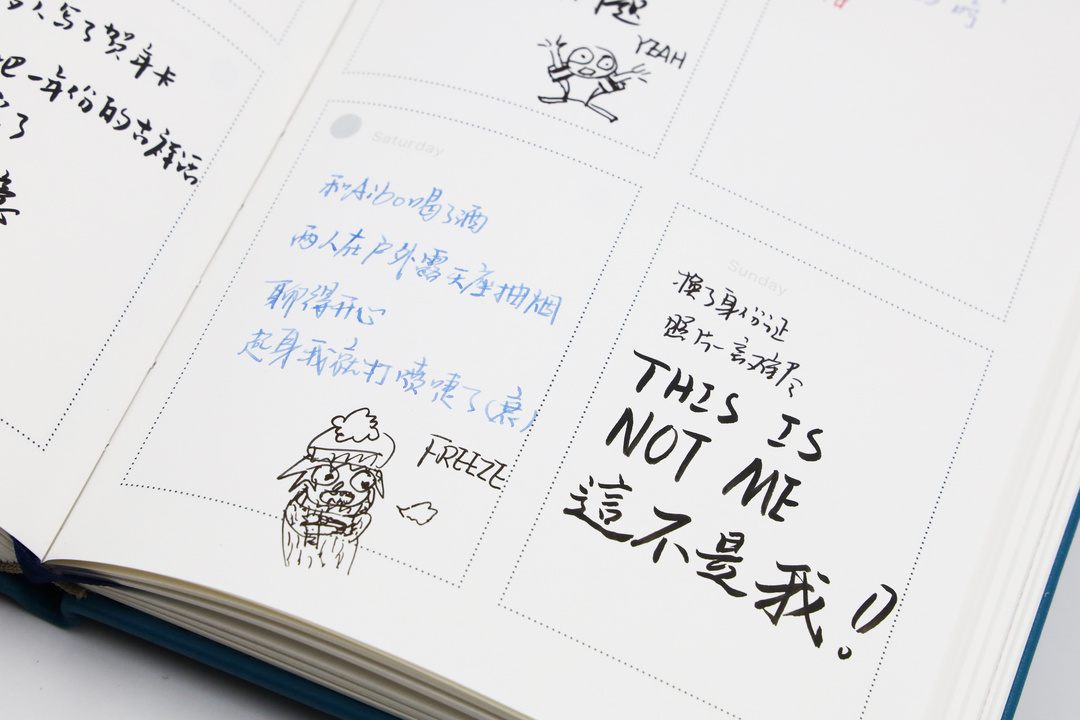 人写了贺年卡
把一年份的吉祥话
了
意
YEAH
Saturday
和Aibo喝了酒
两人在户外露天座抽烟
聊得开心
起身我就打喷嚏了(衰)
FREEZE
Sunday
换了身份证
照片一言难尽
THIS IS
NOT ME
這不是我!